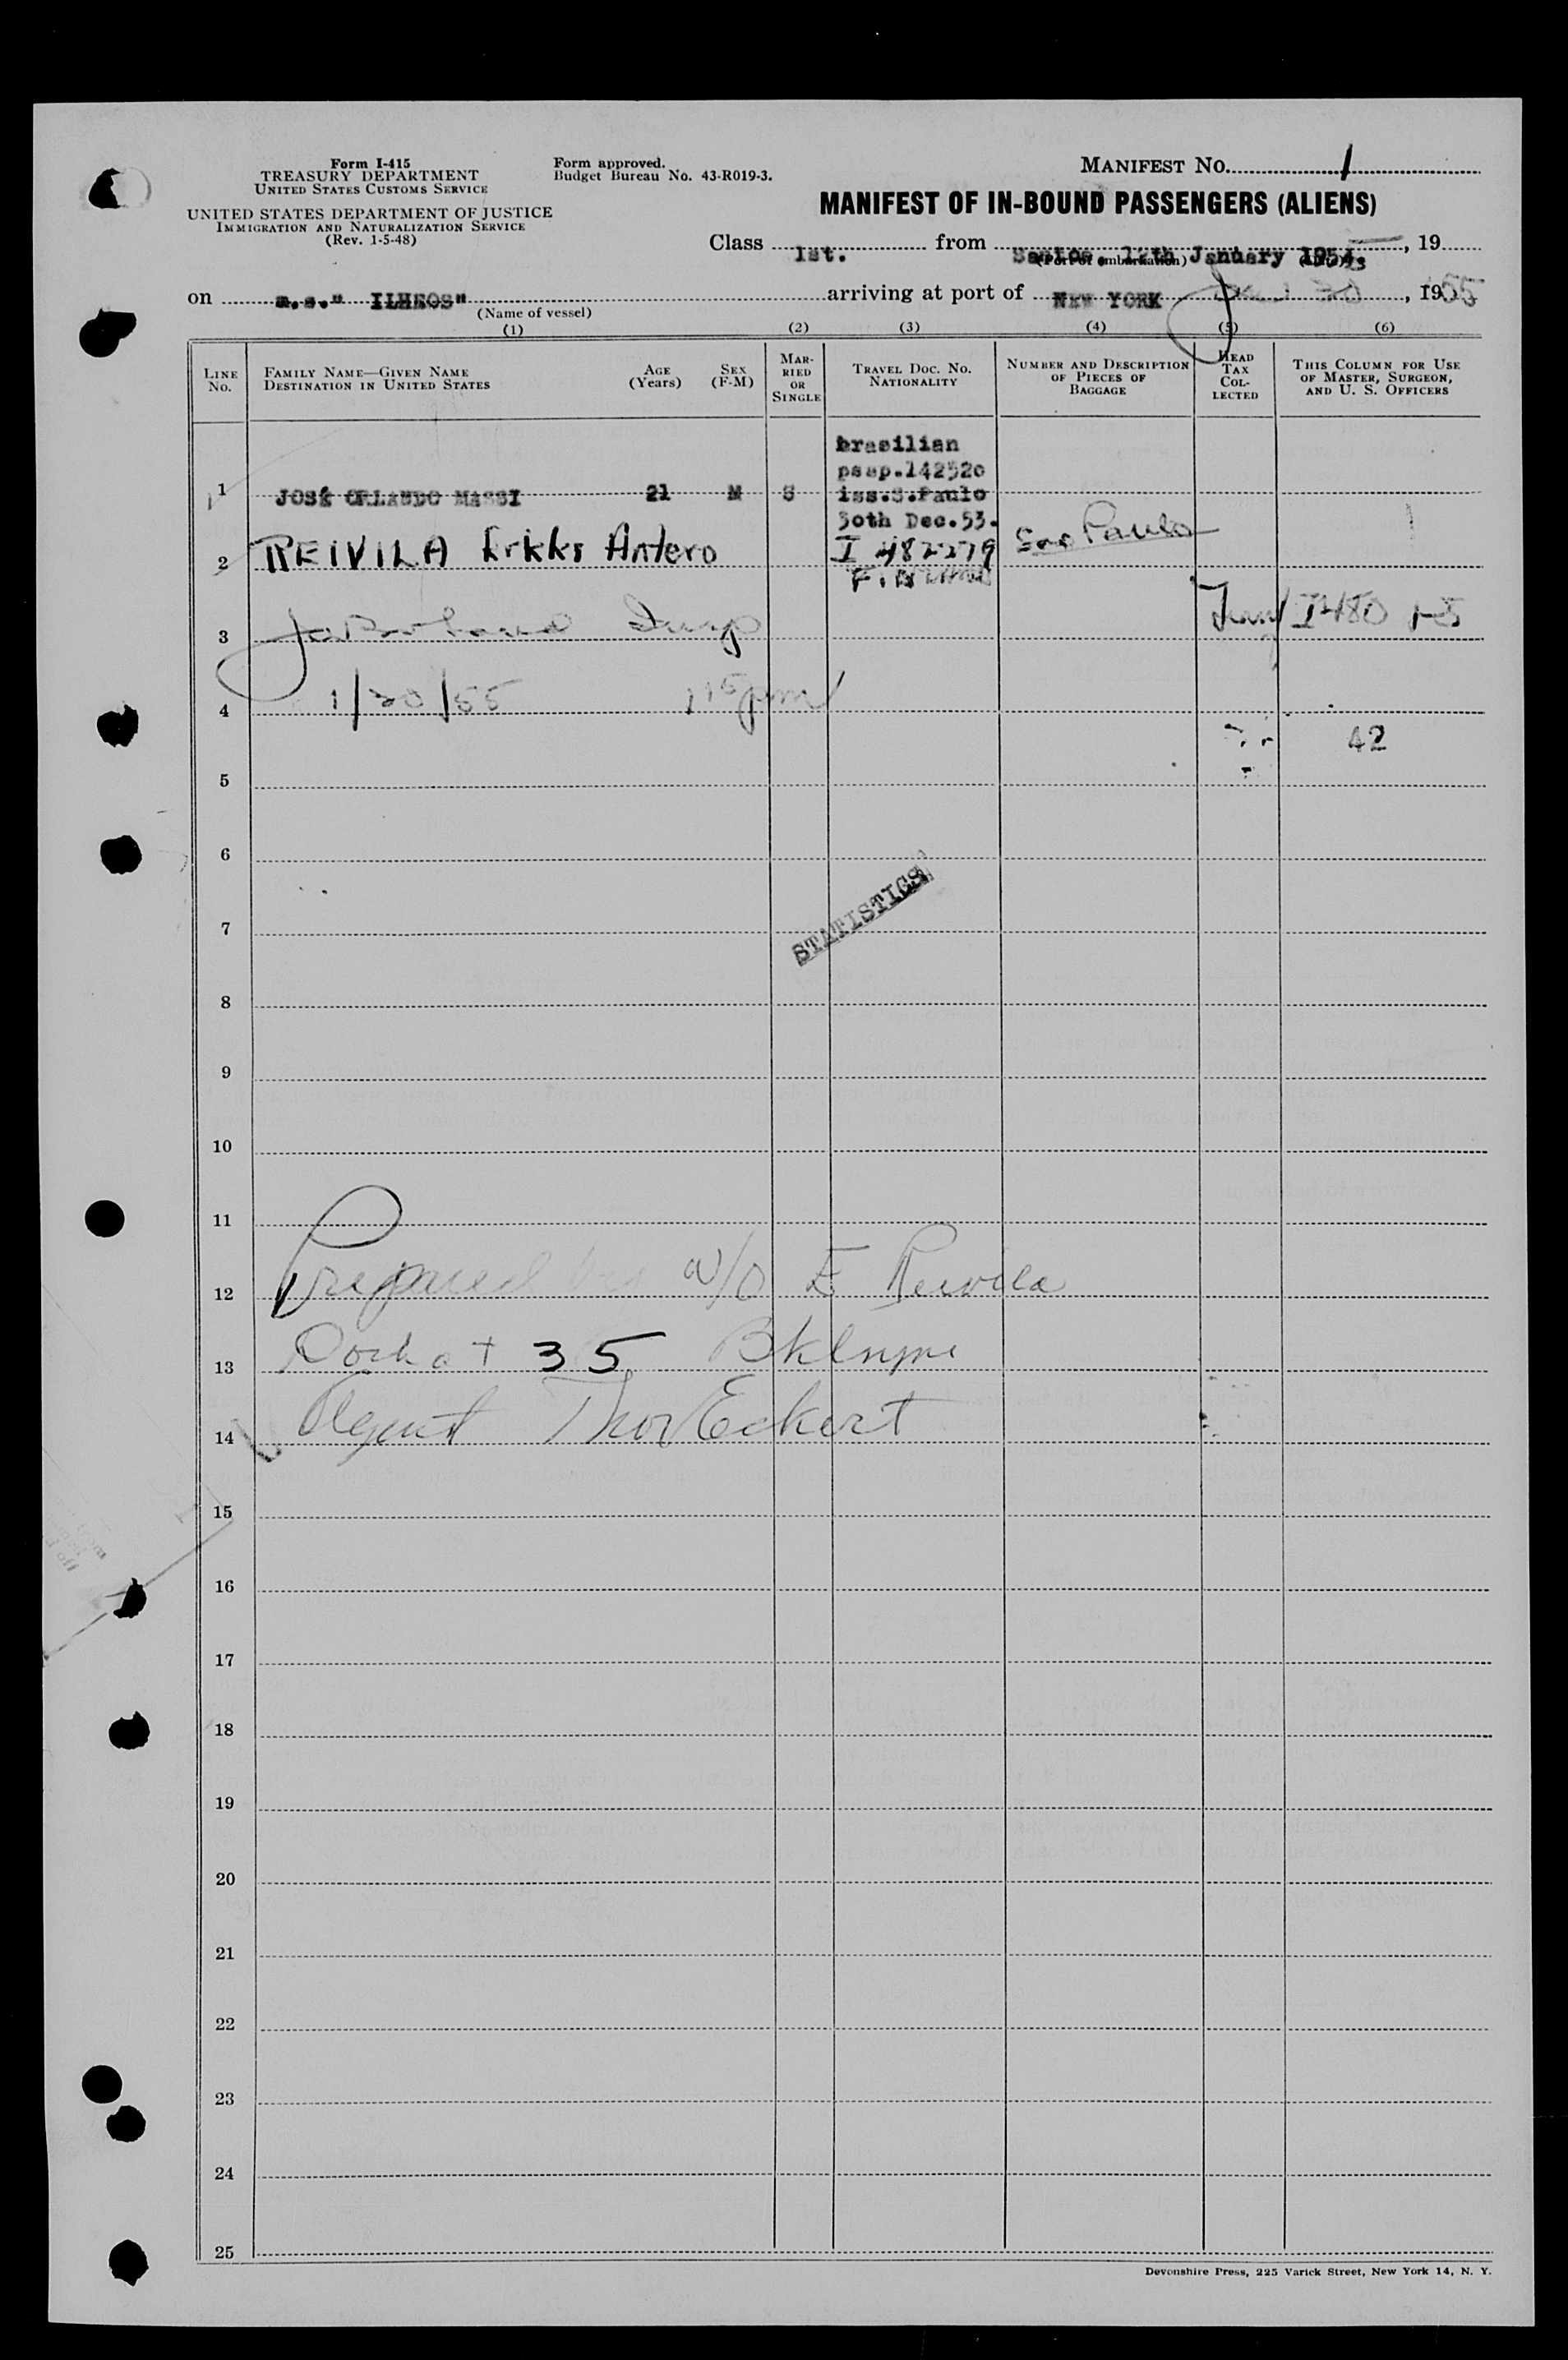 Form I-415
TREASURY DEPARTMENT
UNITED STATES CUSTOMS SERVICE
UNITED STATES DEPARTMENT OF JUSTICE
IMMIGRATION AND NATURALIZATION SERVICE
(Rev. 1-5-48)
Form approved.
Budget Bureau No. 43-R019-3.
MANIFEST NO. 1
MANIFEST OF IN-BOUND PASSENGERS (ALIENS)
Class 1st. from Santos, 12th January 1954. , 19
(Port of embarkation) (Date)
on m.s." ILHEOS" arriving at port of NEW YORK , 1955
(Name of vessel)
(1) (2) (3) (4) (5) (6)
LINE NO.
FAMILY NAME—GIVEN NAME
DESTINATION IN UNITED STATES
AGE (Years)
SEX (F-M)
MARRIED OR SINGLE
TRAVEL DOC. NO.
NATIONALITY
NUMBER AND DESCRIPTION OF PIECES OF BAGGAGE
HEAD TAX COLLECTED
THIS COLUMN FOR USE OF MASTER, SURGEON, AND U. S. OFFICERS
brasilian
pssp.142520
1 JOSÉ ORLANDO MASSI 21 M S iss.S.Paulo
30th Dec.53.
2 REIVILA Erkki Antero I 482279 Sao Paulo
FINLAND
3 I 480
4 1/20/55 115pm
42
5
6
STATISTICS
7
8
9
10
11
12 Prepared by W/O E Reivila
13 Dock at 35 Bklyn
14 Agent Thor Eckert
15
16
17
18
19
20
21
22
23
24
25
Devonshire Press, 225 Varick Street, New York 14, N. Y.